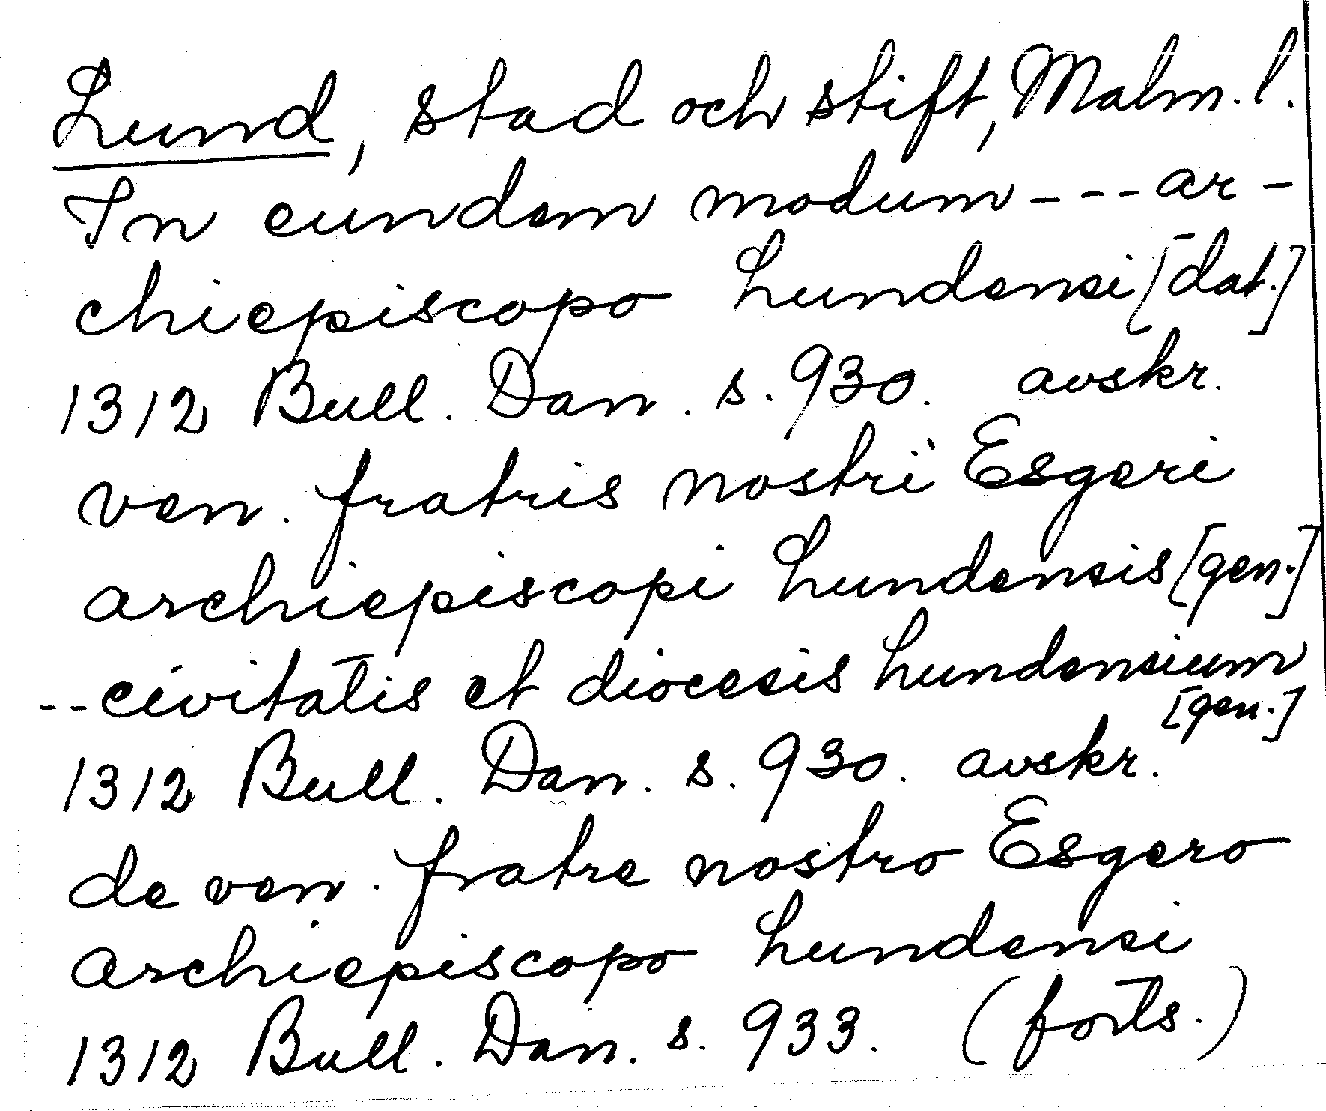 Lund, stad och stift, Malm. l.
In eundem modum --- ar-
chiepiscopo Lundensi [dat.]
1312 Bull. Dan. s. 930. avskr.
ven. fratris nostri Esgeri
archiepiscopi Lundensis [gen.]
-- civitatis et diocesis Lundensium
[gen.]
1312 Bull. Dan. s. 930. avskr.
de ven. fratre nostro Esgero
archiepiscopo Lundensi
1312 Bull. Dan. s. 933. (forts.)